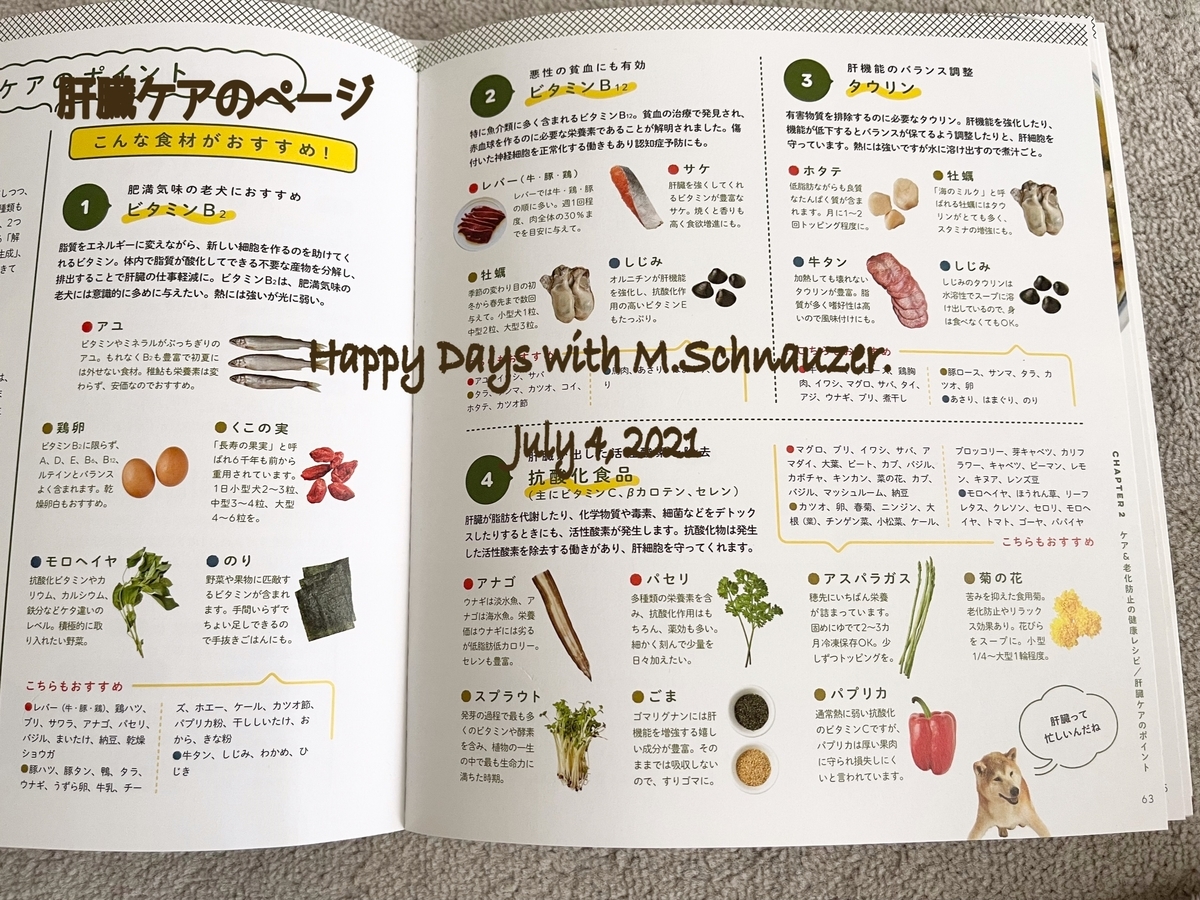 ケアのポイント
肝臓ケアのページ
こんな食材がおすすめ！
1
肥満気味の老犬におすすめ
ビタミンB2
脂質をエネルギーに変えながら、新しい細胞を作るのを助けてく
れるビタミン。体内で脂質が酸化してできる不要な産物を分解し、
排出することで肝臓の仕事軽減に。ビタミンB2は、肥満気味の
老犬には意識的に多めに与えたい。熱には強いが光に弱い。
アユ
ビタミンやミネラルがぎっちりの
アユ。もれなくB2も豊富で初夏に
は外せない食材。稚鮎も栄養素は変
わらず、安価なのでおすすめ。
鶏卵
ビタミンB2に限らず、
A、D、E、B6、B12、
ルテインとバランス
よく含まれます。乾
燥卵白もおすすめ。
くこの実
「長寿の果実」と呼
ばれ6千年も前から
重用されています。
1日小型犬2〜3粒、
中型3〜4粒、大型
4〜6粒を。
モロヘイヤ
抗酸化ビタミンやカ
リウム、カルシウム、
鉄分などケタ違いの
レベル。積極的に取
り入れたい野菜。
のり
野菜や果物に匹敵す
るビタミンが含まれ
ます。手間いらずで
ちょい足しできるの
で手抜きごはんにも。
こちらもおすすめ
レバー（牛・豚・鶏）、鶏ハツ、
ブリ、サワラ、アナゴ、パセリ、
バジル、まいたけ、納豆、乾燥
ショウガ
豚ハツ、豚タン、鴨、タラ、
ウナギ、うずら卵、牛乳、チー
ズ、ホエー、ケール、カツオ節、
パプリカ粉、干ししいたけ、お
から、きな粉
牛タン、しじみ、わかめ、ひ
じき
2
悪性の貧血にも有効
ビタミンB12
特に魚介類に多く含まれるビタミンB12。貧血の治療で発見され、
赤血球を作るのに必要な栄養素であることが解明されました。傷
付いた神経細胞を正常化する働きもあり認知症予防にも。
レバー（牛・豚・鶏）
レバーでは牛・鶏・豚
の順に多い。週1回程
度、肉全体の30％ま
でを目安に与えて。
サケ
肝臓を強くしてくれ
るビタミンが豊富な
サケ。焼くと香りも
高く食欲増進にも。
牡蠣
季節の変わり目の初
冬から春先まで数回
与えて。小型犬1粒、
中型2粒、大型3粒。
しじみ
オルニチンが肝機能
を強化し、抗酸化作
用の高いビタミンE
もたっぷり。
アユ、イワシ、サバ
タラ、サンマ、カツオ、コイ、
ホタテ、カツオ節
3
肝機能のバランス調整
タウリン
有害物質を排除するのに必要なタウリン。肝機能を強化したり、
機能が低下するとバランスが保てるよう調整したりと、肝細胞を
守っています。熱には強いですが水に溶け出すので煮汁ごと。
ホタテ
低脂肪ながらも良質
なたんぱく質が含ま
れます。月に1〜2
回トッピング程度に。
牡蠣
「海のミルク」と呼
ばれる牡蠣にはタウ
リンがとても多く、
スタミナの増強にも。
牛タン
加熱しても壊れない
タウリンが豊富。脂
質が多く嗜好性は高
いので風味付けにも。
しじみ
しじみのタウリンは
水溶性でスープに溶
け出しているので、身
は食べなくてもOK。
鶏胸
肉、イワシ、マグロ、サバ、タイ、
アジ、ウナギ、ブリ、煮干し
豚ロース、サンマ、タラ、カ
ツオ、卵
あさり、はまぐり、のり
Happy Days with M.Schnauzer.
July 4, 2021
4
抗酸化食品
（主にビタミンC、βカロテン、セレン）
肝臓が脂肪を代謝したり、化学物質や毒素、細菌などをデトック
スしたりするときにも、活性酸素が発生します。抗酸化物は発生
した活性酸素を除去する働きがあり、肝細胞を守ってくれます。
マグロ、ブリ、イワシ、サバ、ア
マダイ、大葉、ビート、カブ、バジル、
カボチャ、キンカン、菜の花、カブ、
バジル、マッシュルーム、納豆
カツオ、卵、春菊、ニンジン、大
根（葉）、チンゲン菜、小松菜、ケール、
ブロッコリー、芽キャベツ、カリフ
ラワー、キャベツ、ピーマン、レモ
ン、キヌア、レンズ豆
モロヘイヤ、ほうれん草、リーフ
レタス、クレソン、セロリ、モロヘ
イヤ、トマト、ゴーヤ、パパイヤ
こちらもおすすめ
アナゴ
ウナギは淡水魚、ア
ナゴは海水魚。栄養
価はウナギには劣る
が低脂肪低カロリー。
セレンも豊富。
パセリ
多種類の栄養素を含
み、抗酸化作用はも
ちろん、薬効も多い。
細かく刻んで少量を
日々加えたい。
アスパラガス
穂先にいちばん栄養
が詰まっています。
固めにゆでて2〜3カ
月冷凍保存OK。少
しずつトッピングを。
菊の花
苦みを抑えた食用菊。
老化防止やリラック
ス効果あり。花びら
をスープに。小型
1/4〜大型1輪程度。
スプラウト
発芽の過程で最も多
くのビタミンや酵素
を含み、植物の一生
の中で最も生命力に
満ちた時期。
ごま
ゴマリグナンには肝
機能を増強する嬉し
い成分が豊富。その
ままでは吸収しない
ので、すりゴマに。
パプリカ
通常熱に弱い抗酸化
のビタミンCですが、
パプリカは厚い果肉
に守られ損失しにく
いと言われています。
肝臓って
忙しいんだね
CHAPTER 2 ケア&老化防止の健康レシピ／肝臓ケアのポイント
63